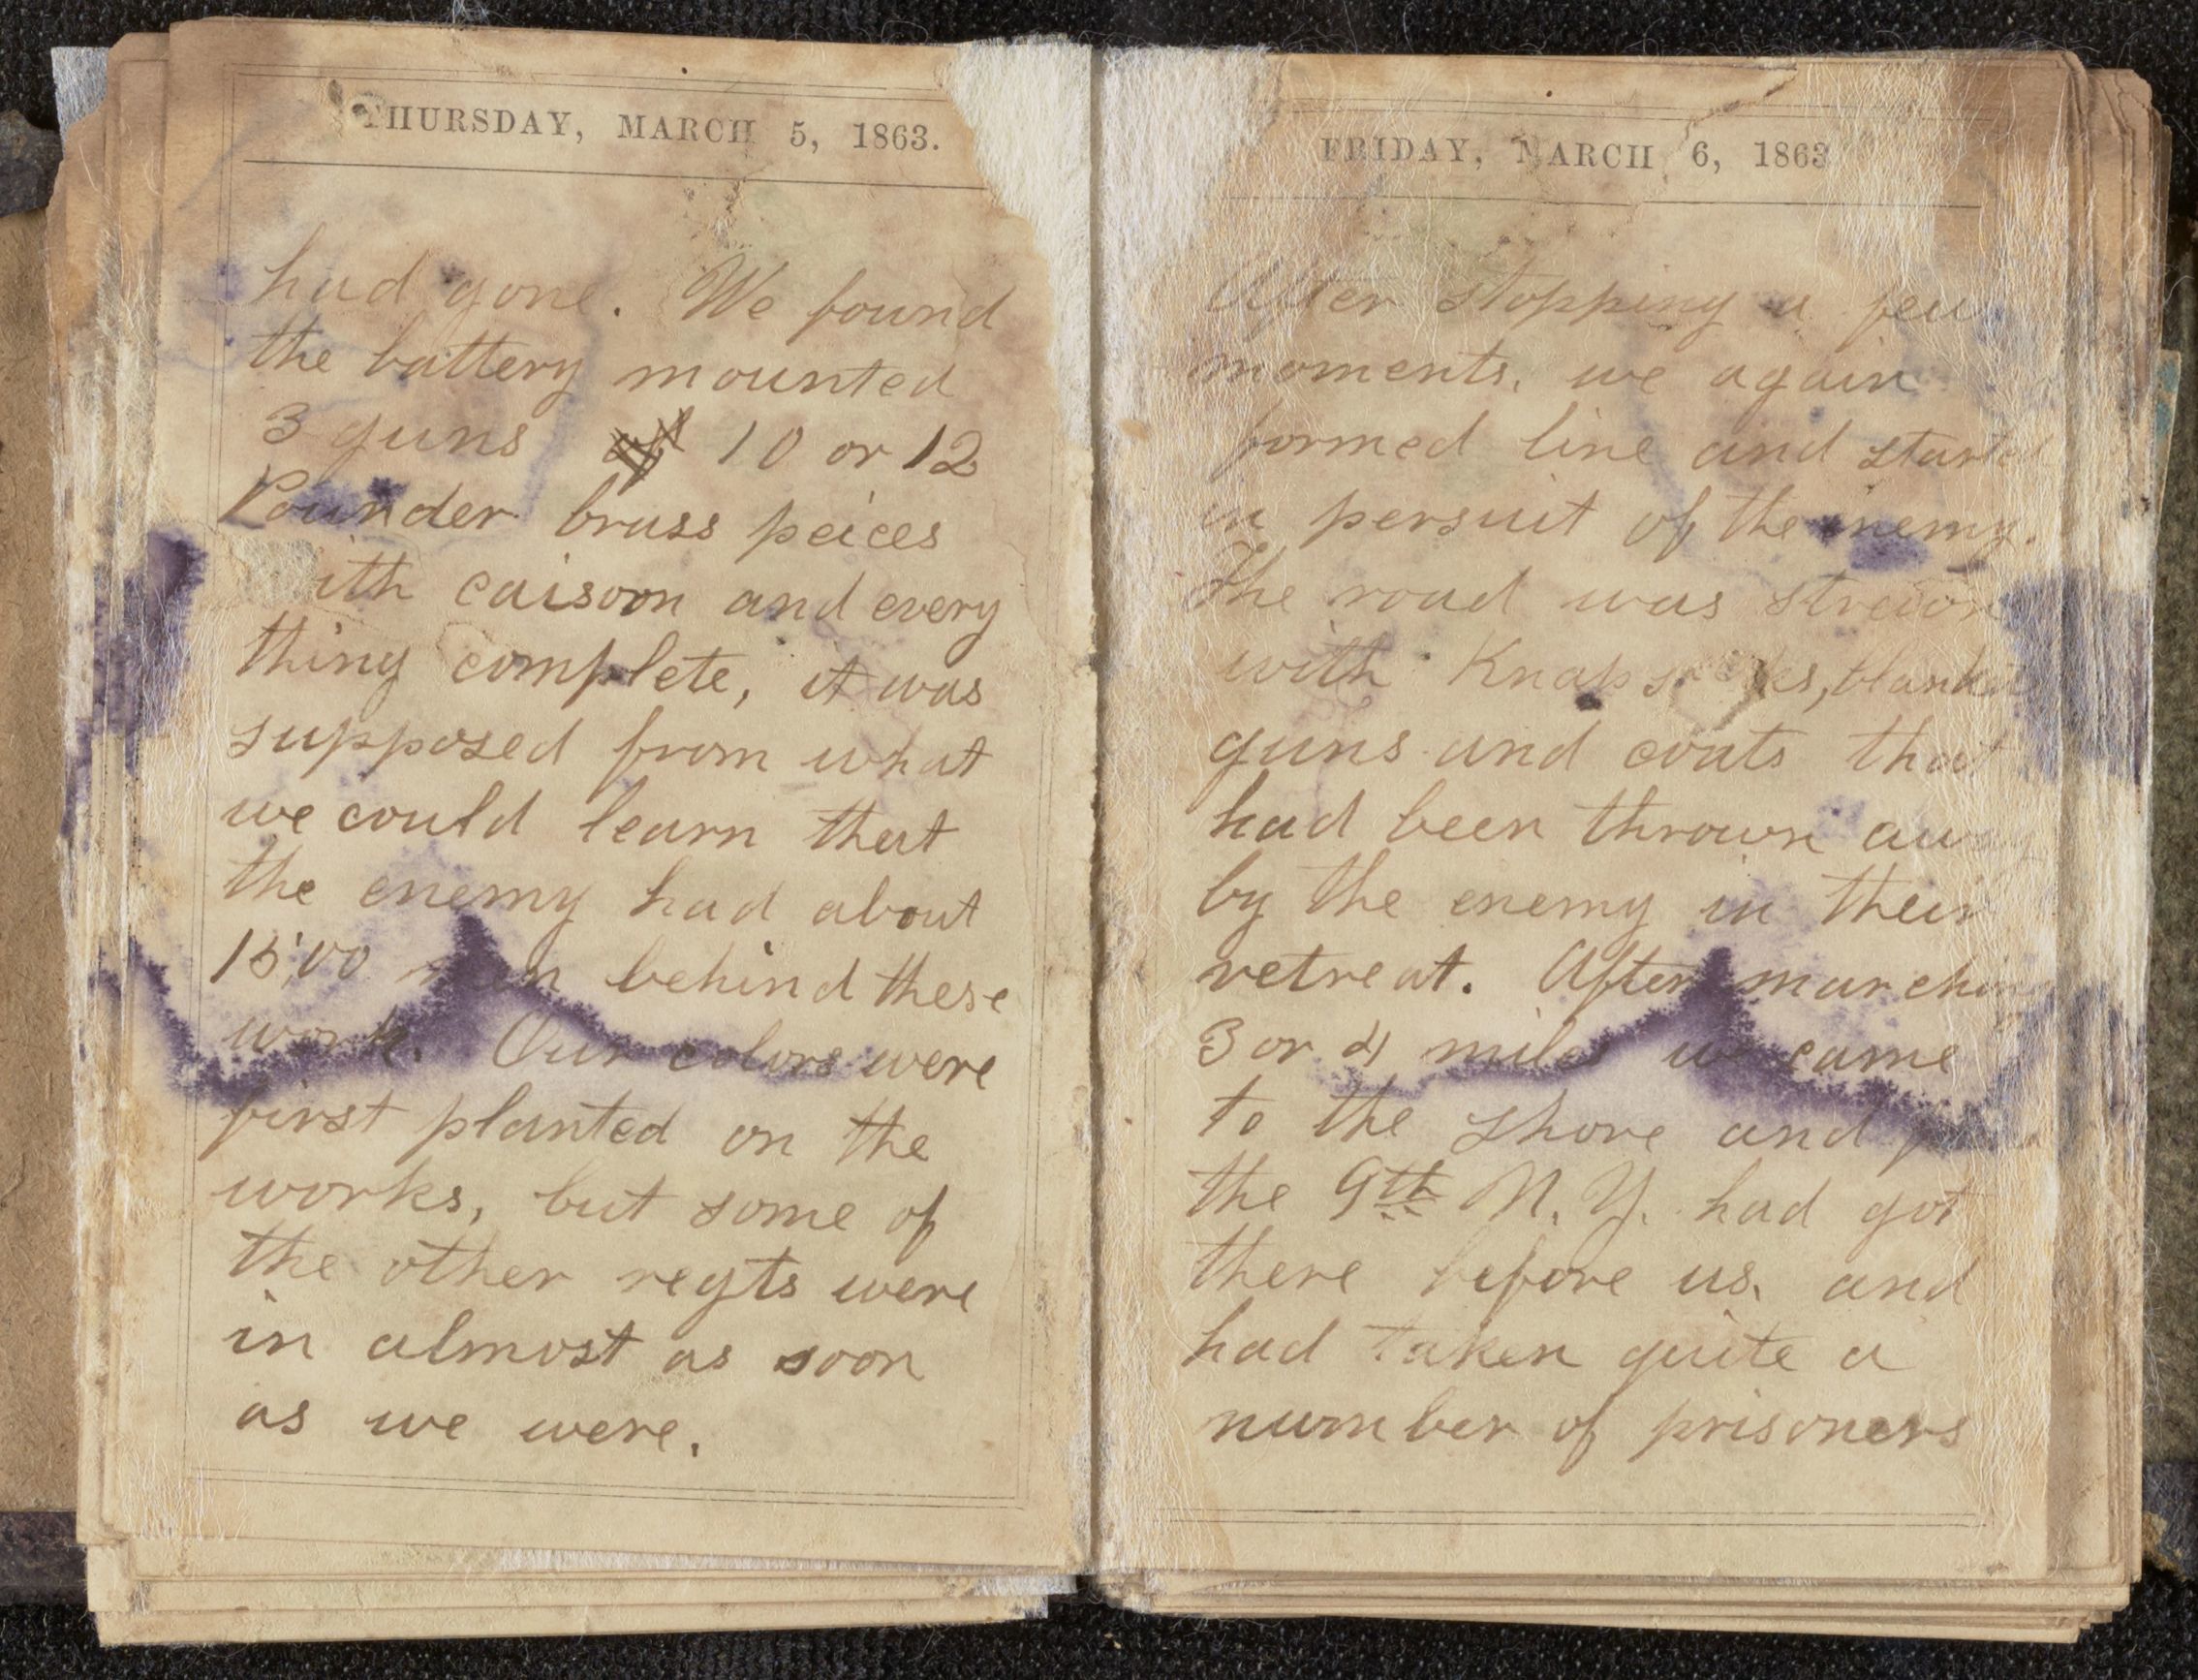 THURSDAY, MARCH 5, 1863.
had gone. We found
the battery mounted
3 guns 10 or 12
Pounder brass peices
with caisoon and every
thing complete, it was
supposed from what
we could learn that
the enemy had about
1500 men behind these
work. Our colors were
first planted on the
works, but some of
the other regts were
in almost as soon
as we were.
FRIDAY, MARCH 6, 1863
After stopping a few
moments, we again
formed line and started
in persuit of the enemy.
The road was strewn
with Knapsacks, blankets
guns and coats that
had been thrown away
by the enemy in their
retreat. After marching
3 or 4 miles we came
to the shore and
the 9th N. Y. had got
there before us, and
had taken quite a
number of prisoners